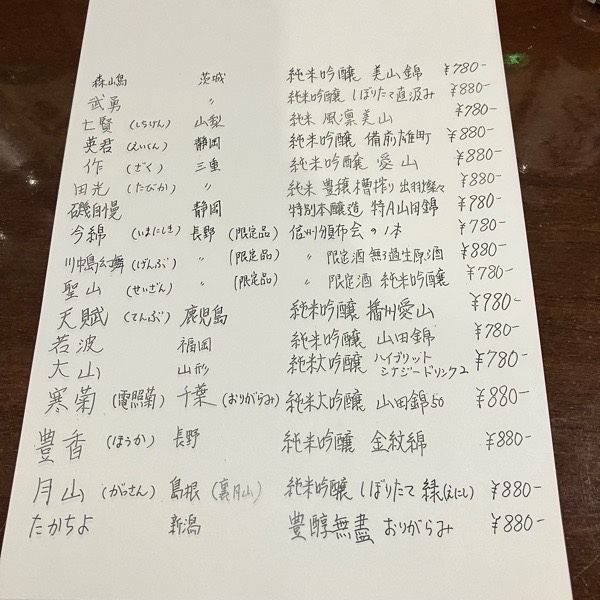 森嶋 茨城 純米吟醸 美山錦 ¥780-
武勇 〃 純米吟醸 しぼりたて直汲み ¥880-
七賢 (しちけん) 山梨 純米 風凛美山 ¥780-
英君 (えいくん) 静岡 純米吟醸 備前雄町 ¥880-
作 (ざく) 三重 純米吟醸 愛山 ¥880-
田光 (たびか) 〃 純米 豊穣槽搾り 出羽燦々 ¥880-
磯自慢 静岡 特別本醸造 特A山田錦 ¥980-
今錦 (いまにしき) 長野 (限定品) 信州頒布会の1本 ¥780-
川中島幻舞 (げんぶ) 〃 (限定品) 〃 限定酒 無ろ過生原酒 ¥880-
聖山 (せいざん) 〃 (限定品) 〃 限定酒 純米吟醸 ¥780-
天賦 (てんぶ) 鹿児島 純米吟醸 播州愛山 ¥980-
若波 福岡 純米吟醸 山田錦 ¥780-
大山 山形 純米大吟醸 ハイブリット シナジードリンク2 ¥780-
寒菊 (電照菊) 千葉 (おりがらみ) 純米大吟醸 山田錦50 ¥880-
豊香 (ほうか) 長野 純米吟醸 金紋錦 ¥880-
月山 (がっさん) 島根 (裏月山) 純米吟醸 しぼりたて 縁(えにし) ¥880-
たかちよ 新潟 豊醇無盡 おりがらみ ¥880-